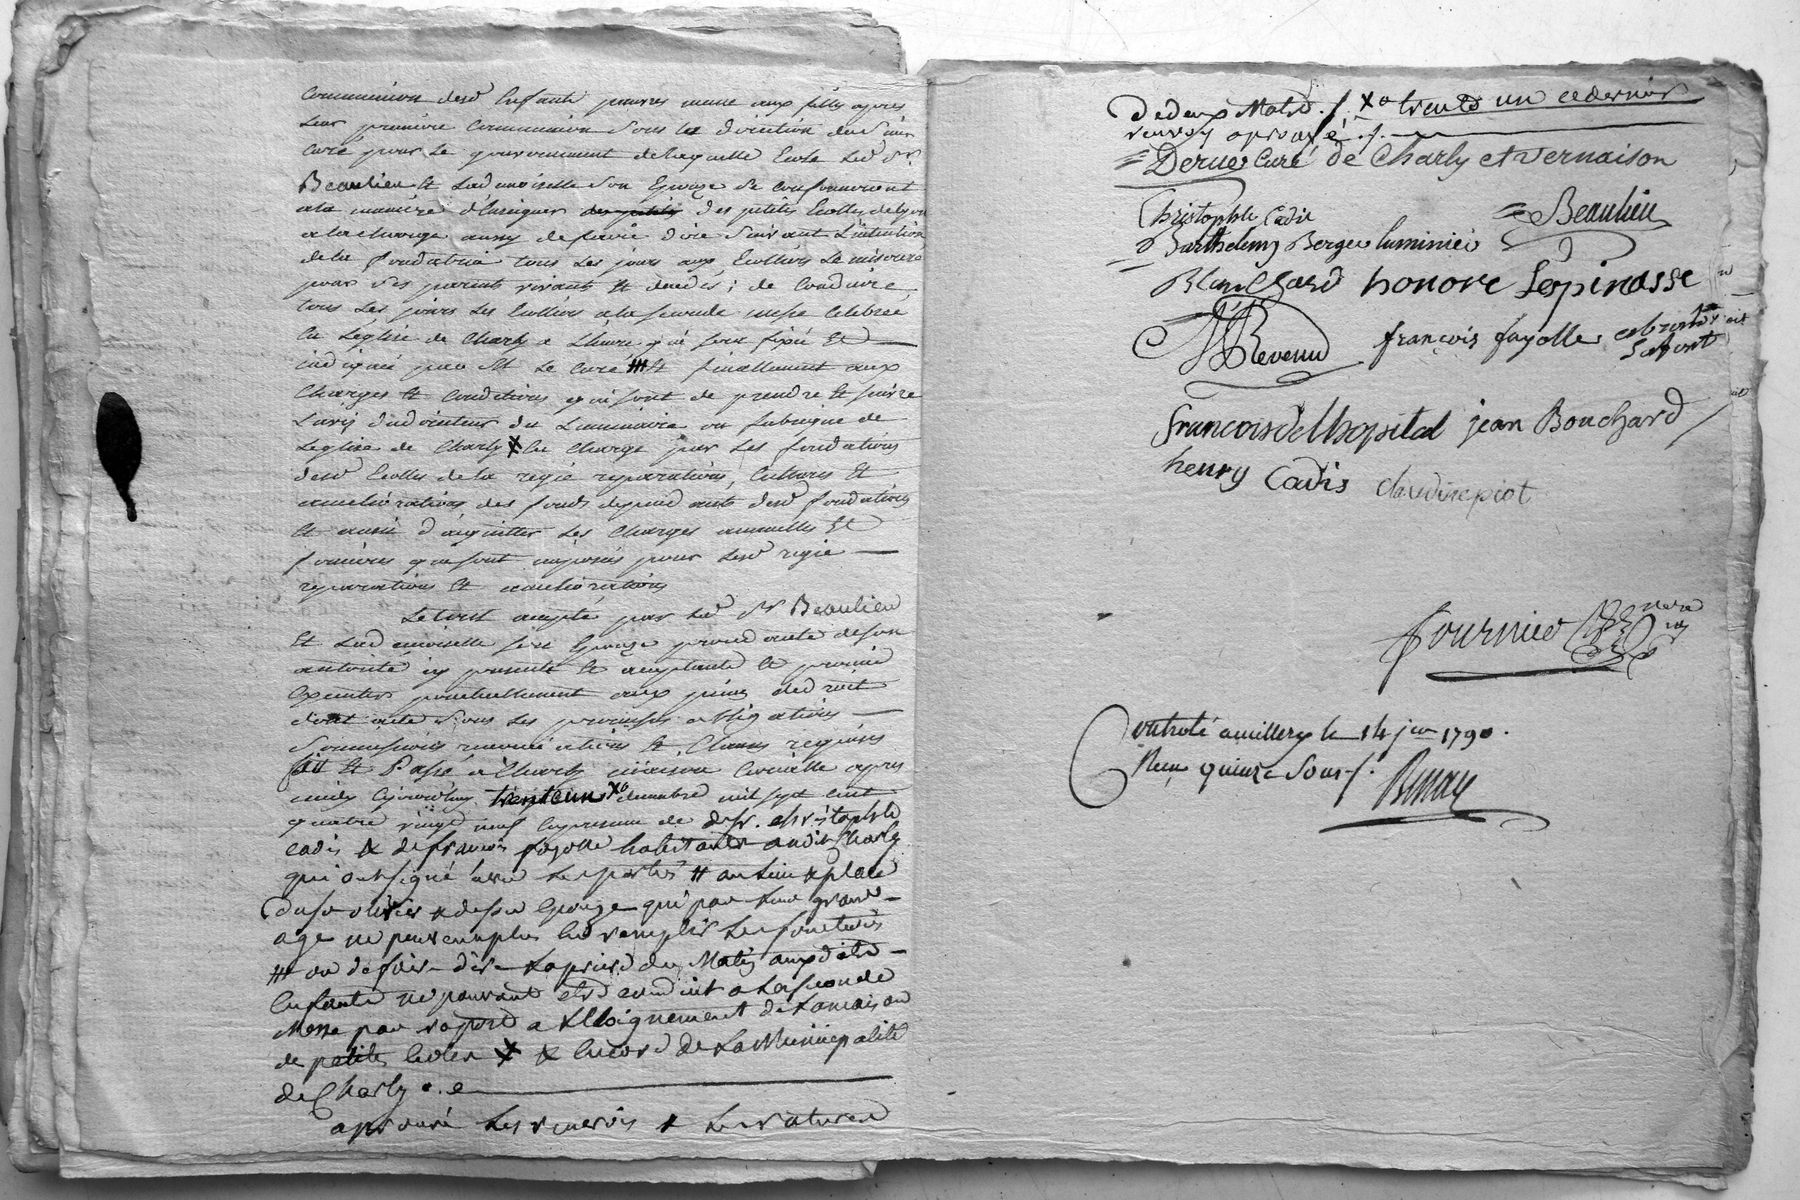 Communion desd Enfants pauvres meme aux filles apres
leur premiere Communion sous la direction du Sieur
Curé pour le gouvernement de laquelle Ecole led Sr
Beaulieu et Lademoiselle son Epouze se conformeront
ala maniere d'Enseigner des petits des petites Ecolles de Lyon
ala charge aussy de faire dire suivant L'intention
de la fondatrice tous les jours aux Ecolliers Le miserere
pour ses parents vivants et decedés; de Conduire
tous les jours les Ecolliers ala seconde messe Celebrée
En L'eglise de Charly a L'heure qui sera fixée Et
indiquée par M Le Curé # Et finallement aux
Charges et Conditions qui sont de prendre Et suivre
L'avis du directeur du Luminaire ou fabrique de
L'eglise de Charly X En charge pour les fondations
desd Ecolles de la regie reparations, Cultures Et
ameliorations des fonds dependants desd fondations
Et aussi d'acquitter les Charges annuelles Et
foncieres qui sont imposés pour lesd regie
reparations Et ameliorations
Le tout accepté par led Sr Beaulieu
Et Lad demoiselle son Epouze procedante de son
autorité icy presents Et acceptants Et promis
Executer ponctuellement aux peines de droit
dont acte sous les promesses obligations
Soumissions renonciations Et Clauses requises
fait Et Passé a Charly maison Curialle apres
midy Cejourdhuy trente un Xo decembre mil sept cent
quatre vingt neuf En presence de de Sr. christophle
cadis & de francois fayolle habitants audit Charly
qui ont signé avec les parties # au lieu & place
du Sr olivier & de sa Epouze qui par leur grand
age ne peuvent plus en remplir les fonctions
# ou de faire dire la priere du Matin auxdits
Enfants ne pouvant etre conduit a la seconde
Messe par raport a l'Eloignement de la maison
de petites Ecoles X & Encore de la Municipalité
de Charly . e
aprouvé les renvois & les ratures
de deux Mots ./. Xo trente un ce dernier
renvoy aprouvé ./.
Derue Curé de Charly et Vernaison
Christophle Cadis
Beaulieu
Barthelemy Berger luminier
Blanchard honore Lespinasse
Revenu françois fayolle
françois de lhopital jean Bouchard
henry Cadis claudin epiot
fournier
Controlé a millery le 14 jer 1790.
Reçu quinze Sous ./.